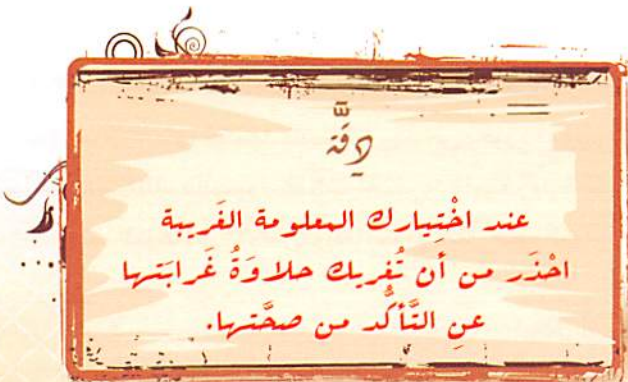 دِقَّة
عند اخْتِيارك المعلومة الغَريبة
احْذَر من أَن تُغريك حلاوَةُ غَرابَتها
عنِ التَّأَكُّد من صحَّتها.